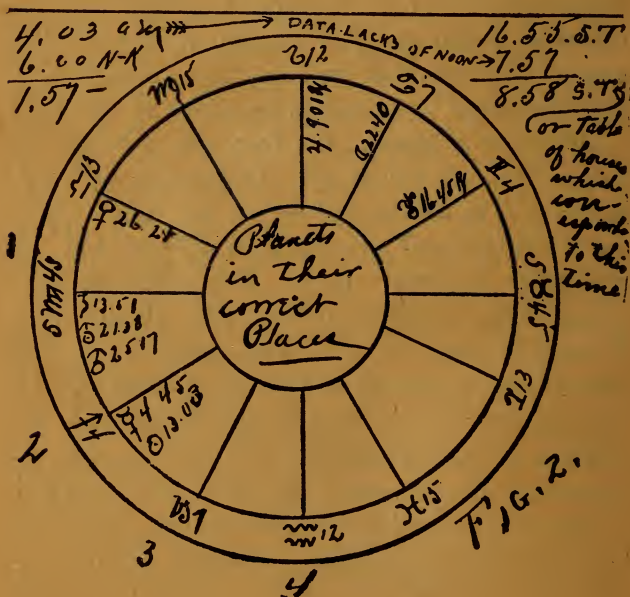 4.03 →
DATA LACKS OF NOON →
6.00
1.57 -
16.55.S.T
7.57
8.58 S.T
or Table
of houses
which
corr-
esponds
to this
time
♌12
♋7
♊4
5 ♉ 45
♈13
♓15
♒12
♑7
♐4
5 ♏ 45
♎13
♍15
☾22 40
♀26 2
13.51
21.38
25 17
4 45
☉13.03
Planets
in their
correct
Places
1
2
3
4
FIG. 2.